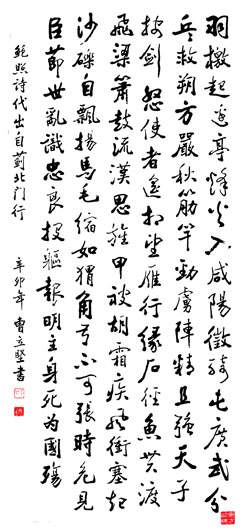 羽檄起邊亭烽火入咸陽徵騎屯廣武分
兵救朔方嚴秋筋竿勁虜陣精且強天子
按劍怒使者遙相望雁行緣石徑魚貫渡
飛梁簫鼓流漢思旌甲被胡霜疾風衝塞起
沙礫自飄揚馬毛縮如蝟角弓不可張時危見
臣節世亂識忠良投軀報明主身死為國殤
鮑照詩代出自薊北門行
辛卯年曹立堅書